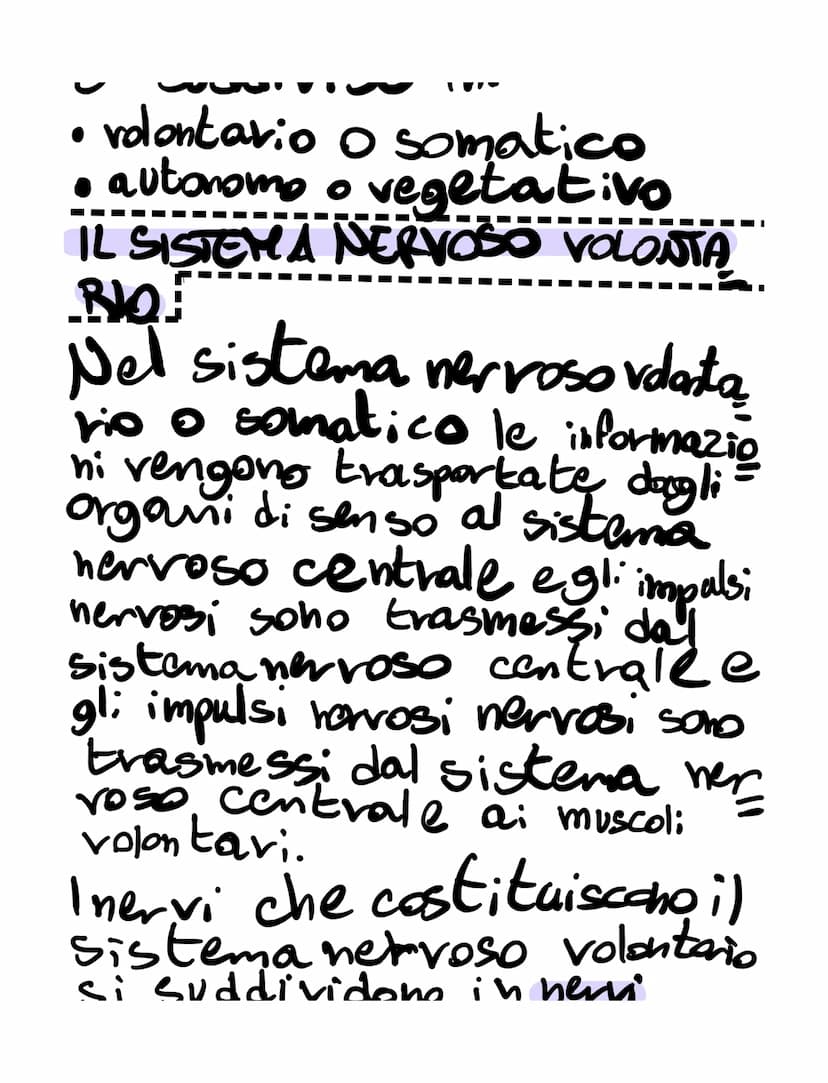 è suddiviso in:
• volontario o somatico
• autonomo o vegetativo
IL SISTEMA NERVOSO VOLONTA=
RIO
Nel sistema nervoso volonta=
rio o somatico le informazio=
ni vengono trasportate dagli
organi di senso al sistema
nervoso centrale e gli impulsi
nervosi sono trasmessi dal
sistema nervoso centrale e
gli impulsi nervosi nervosi sono
trasmessi dal sistema ner=
voso centrale ai muscoli
volontari.
I nervi che costituiscono il
sistema nervoso volontario
si suddividono in nervi